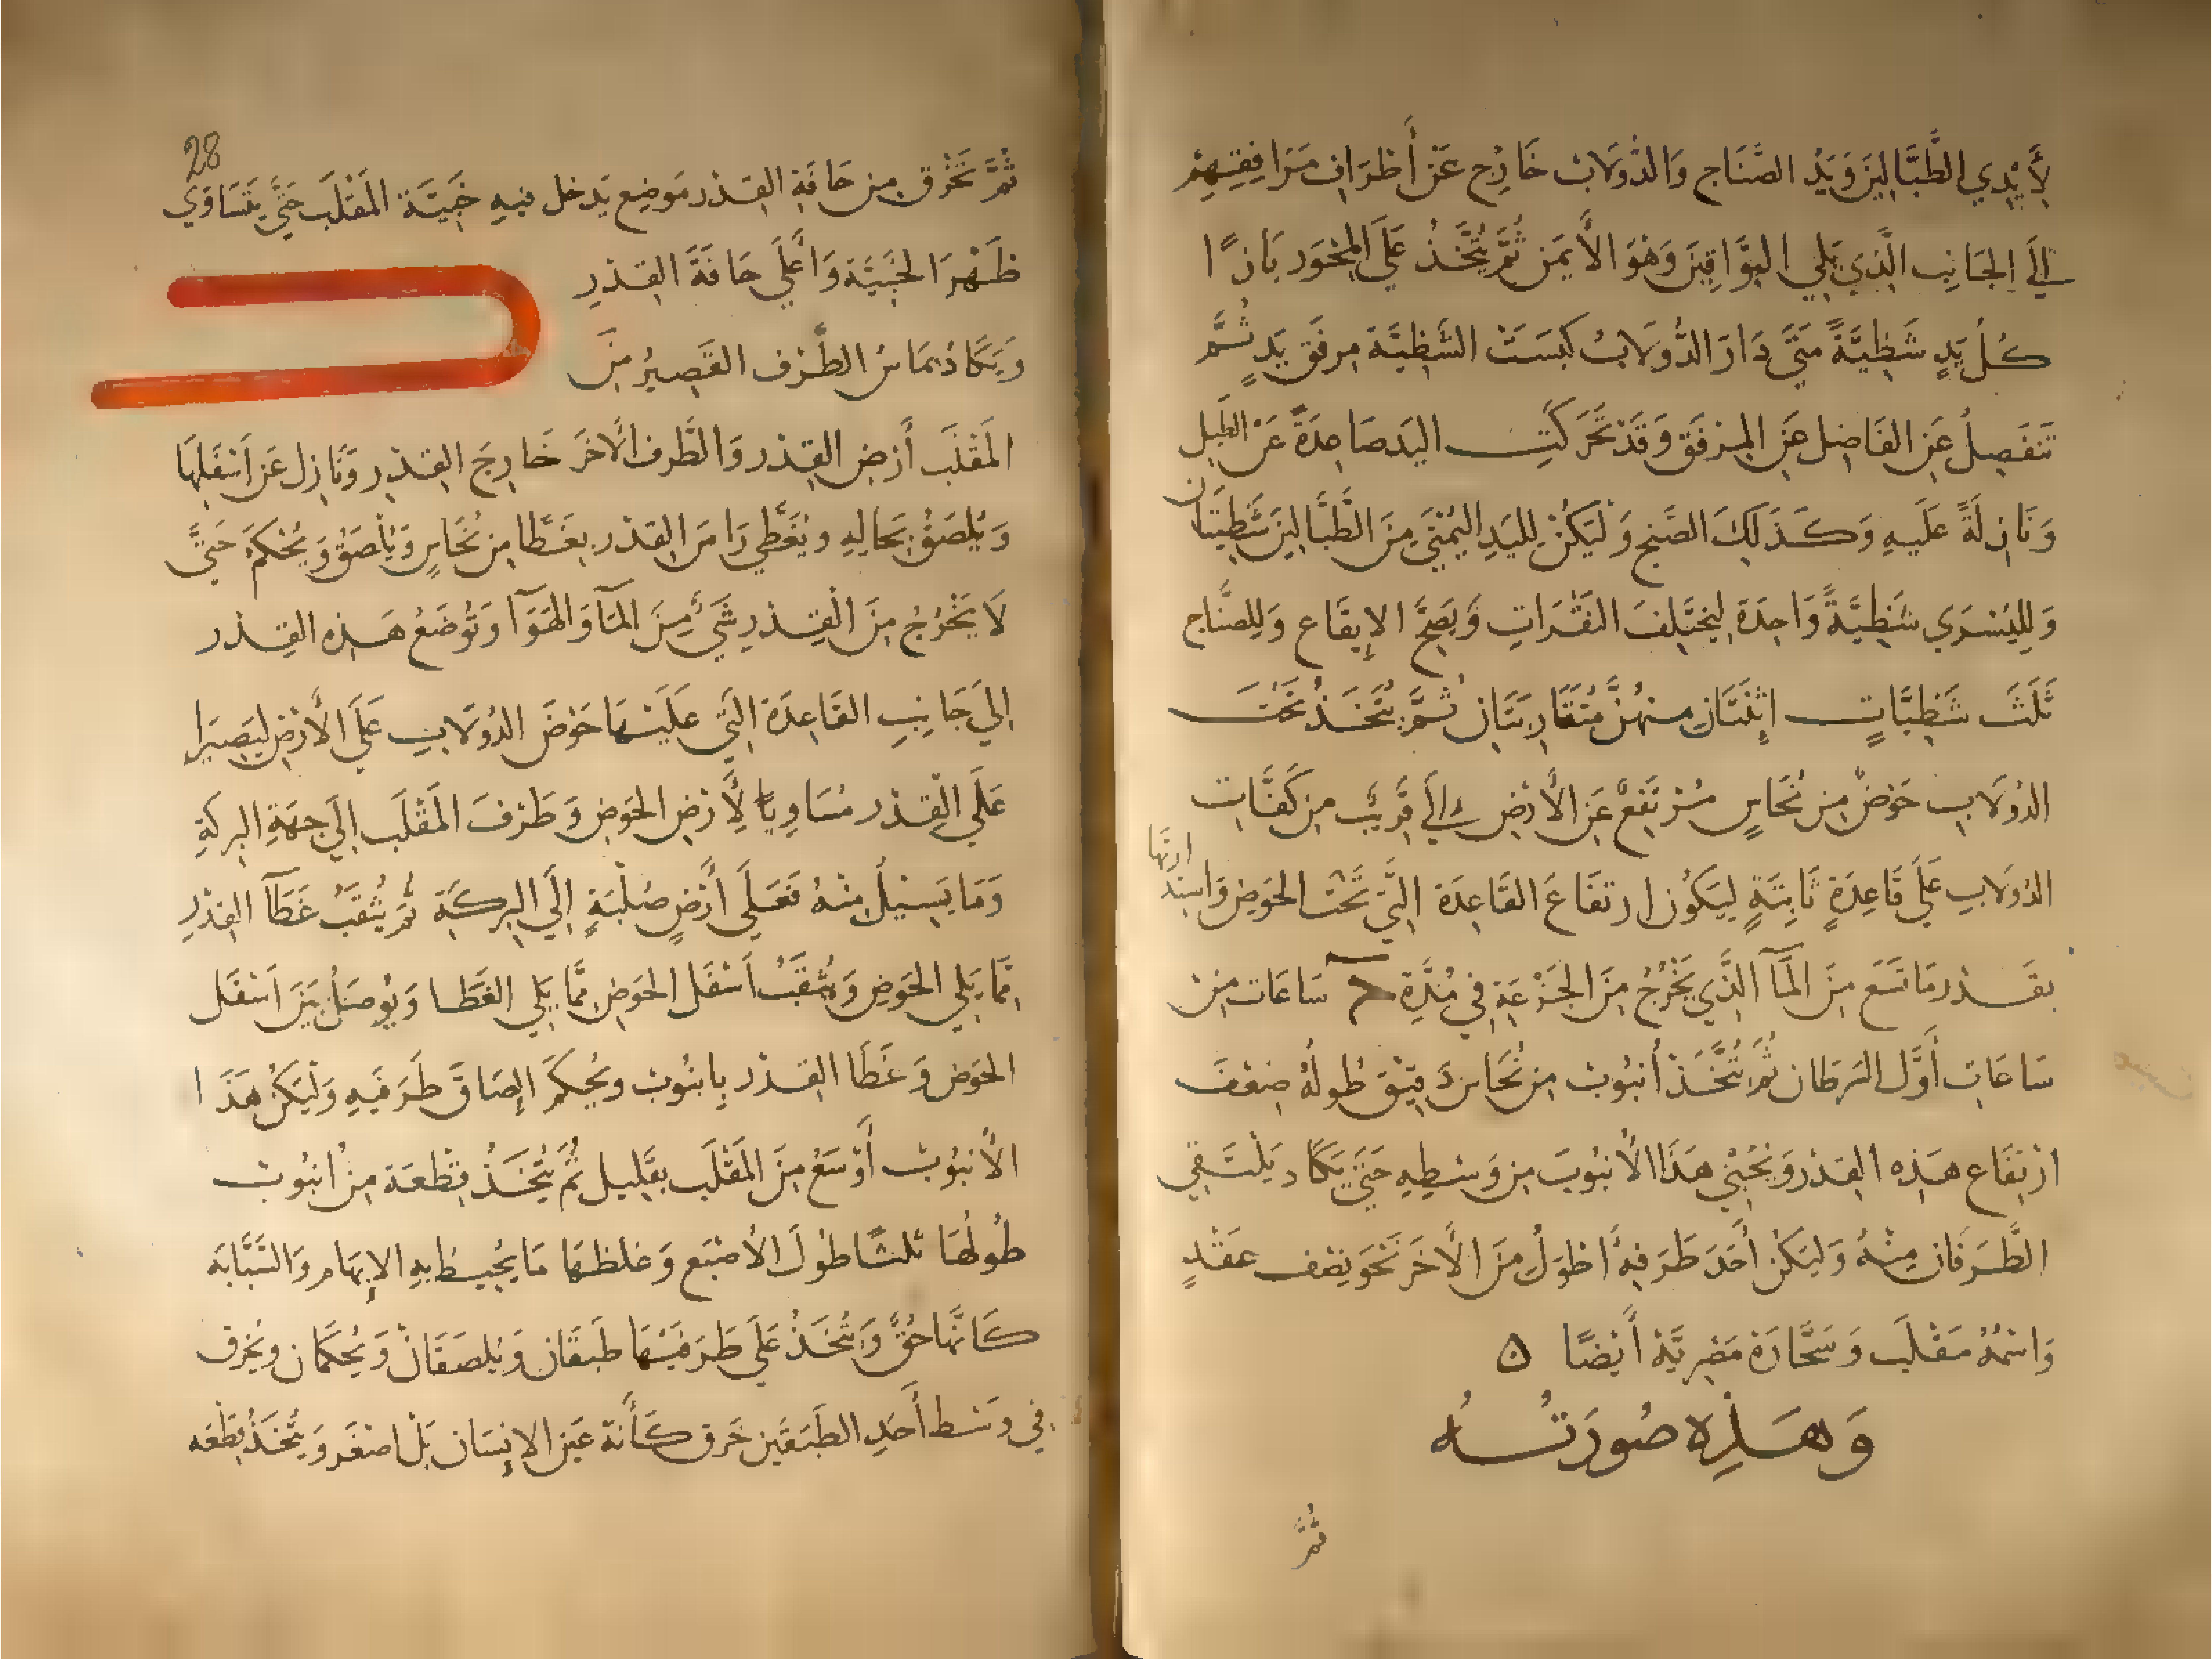 لِأَيْدِي الطَّبَّالِينَ وَيَدُ الصَّنَّاجِ وَالدُّولَابُ خَارِج عَنْ أَطْرَافِ مَرَافِقِهِمْ
إِلَى الجَانِبِ الَّذِي يَلِي البَوَّاقِينَ وَهُوَ الأَيْمَن ثُمَّ يُتَّخَذُ عَلَى المِحْوَرِ بَازَا
كُلِّ يَدٍ شَظِيَّةً مَتَى دَارَ الدُّولَابُ كَبَسَتْ الشَّظِيَّة مِرفَق يَدٍ ثُمَّ
تَنفَصِلُ عَنِ الفَاضِل عَنِ المِرْفَق وَقَدْ تَحَرَّكَتِ اليَد صَاعِدَةً عَنْ الطَّبل
وَنَازِلَةً عَلَيهِ وَكَذَلِكَ الصَّنج وَلْيَكُنْ لِليَدِ اليُمْنَى مِنَ الطَّبَّالِينَ شَظِيَّتَان
وَلِليُسْرَى شَظِيَّةً وَاحِدَة لِيَخْتَلِفَ النَقَرَاتِ وَيَصِحَّ الإِيقَاع وَلِلصَّنَّاج
ثَلَثَ شَظِيَّاتٍ إِثْنَتَانِ مِنهُنَّ مُتَقَارِبَتَانِ ثُمَّ يُتَّخَذُ تَحْتَ
الدُولَابِ حَوْضٌ مِن نُحَاسٍ مُرْتَفِعٌ عَنِ الأَرْضِ إِلَى قَرِيْبٍ مِن كَفَّات
الدُولَابِ عَلَى قَاعِدَةٍ ثَابِتَةٍ لِيَكُون ارتفَاعَ القَاعِدَة الَّتِي تَحْتَ الحَوضِ وَاستِدَارتهَا
بقَدْرِ مَا تَسَع مِنَ المَآ الَّذِي يَخْرُجُ مِنَ الجَزْعَةِ فِي مُدَّةِ سَاعَات مِنْ
سَاعَاتِ أَوَّلِ السَرَطَان ثُمَّ يُتَّخَذ أُنبُوبٌ مِن نُحَاس دَقِيْق طُولُهُ ضِعْفَ
ارْتِفَاع هَذِهِ القِدْر وَيُحْنَى هَذَا الأُنبُوبَ مِن وَسْطِهِ حَتَّى يَكَاد يَلْتَقِي
الطَّرَفَان مِنْهُ وَليَكُنْ أَحَدَ طَرَفَيهِ أَطْوَلُ مِنَ الآخَرِ نَحْوَ نِصْف عَقْدٍ
وَاسْمُهُ مَقْلَب وَسَحَّارَة مَصْرِيَّة أَيْضًا ٥
وَهَذِهِ صُورَتُهُ
ثمّ
28
ثُمَّ تَخْرُقُ مِن حَافَةِ القِدْر مَوضِع يَدخل فِيهِ حَنِيَّة المَقْلَب حَتَّى يَتَسَاوَى
ظَهْرَ الحَنِيَّة وَأَعْلَى حَافَةَ القِدْرِ
وَيَكَادُ يمَاسُ الطَّرْف القَصِيْرُ مِنَ
المَقْلَب أَرْضِ القِدْر وَالطَّرف الآخَر خَارِجَ القِدْر وَنَازِل عَنْ أَسْفَلِهَا
وَيُلصَقُ بحَالِهِ ويُغَطَّى رَاسَ القِدْر بِغَطَّا مِن نُحَاسٍ وَيُلْصَقْ وَيُحْكَمَ حَتَّى
لَا يَخْرُجُ مِنَ القِدْرِ شَيْءٌ مِنَ المَآ وَالهَوَآ وَتُوضَعُ هَذِهِ القِدْر
إِلَى جَانِبِ القَاعِدَة التِي عَلَيْهَا حَوْضَ الدُولَابِ عَلَى الأَرْضِ لِيَصِيرَا
عَلَى القِدْر مُسَاوِيًا لِأَرْضِ الحَوض وَطَرْفَ المَقْلَب إِلَى جِهَةِ البركَةِ
وَمَا يَسِيْلُ مِنْهُ فَعَلَى أَرْضٍ صُلْبَةٍ إِلَى البِركَةِ ثُمَّ يُثْقَبُ غَطَآ القِدْرِ
مِمَّا يَلِي الحَوضِ وَيُثْقَبُ أَسْفَل الحَوضِ مِمَّا يَلِي الغَطَا وَيُوصَلُ بَيْنَ أَسْفَل
الحَوضِ وَغَطَا القِدْر بِانبُوبٍ ويُحْكَمُ إِلصَاقَ طَرَفَيهِ وَلْيَكُنْ هَذَا
الأُنبُوبُ أَوْسَعُ مِنَ المَقْلَب بِقَلِيل ثُمَّ يُتَّخَذُ قِطْعَة مِنْ أُنبُوب
طُولُهَا ثلثَا طُولَ الأُصْبَع وَغلظهَا مَا يُحِيط بِهِ الإِبهَام وَالسَّبَّابَة
كَأَنَّهَا حُقٌّ وَيُتَّخَذُ عَلَى طَرَفَيْهَا طَبَقَان وَيُلصَقَانْ وَيُحكَمَان وَيُخرَق
فِي وَسْط أَحَدِ الطَبَقَين خَرق كَأَنَّهُ عَينِ الإِنسَان بَلْ أَصْغَر وَيُتَّخَذُ قِطْعَه